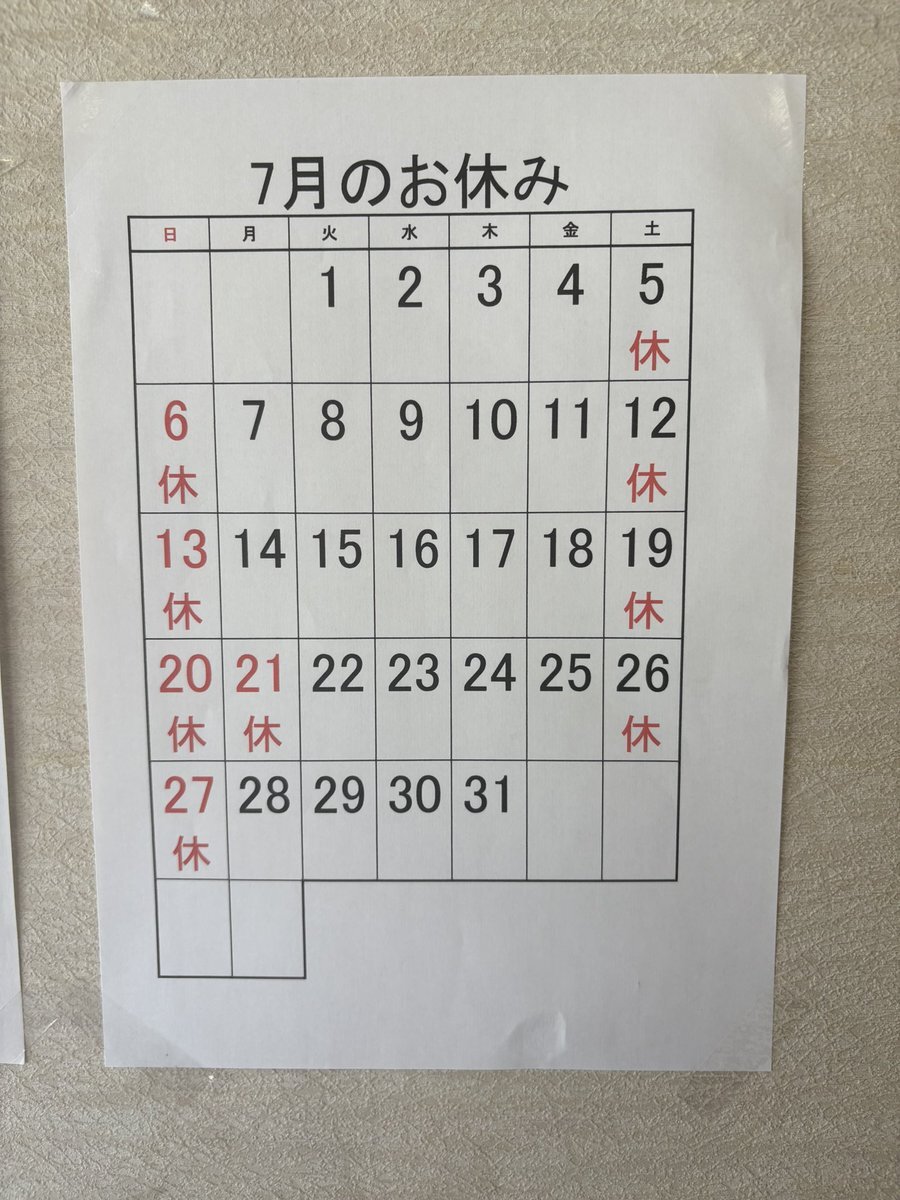 7月のお休み
日 月 火 水 木 金 土
1 2 3 4 5
休
6 7 8 9 10 11 12
休 休
13 14 15 16 17 18 19
休 休
20 21 22 23 24 25 26
休 休 休
27 28 29 30 31
休